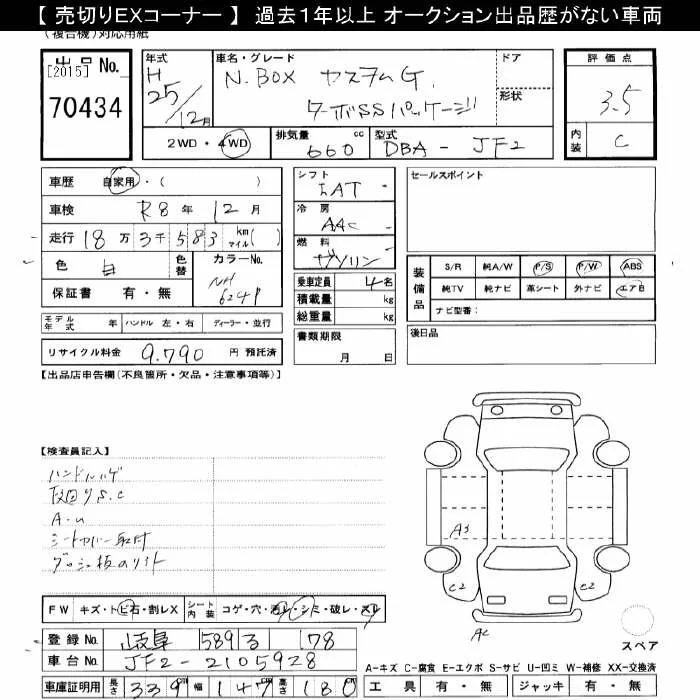 【 売切りEXコーナー 】 過去１年以上 オークション出品歴がない車両
(複合機)対応用紙
出品 No.
[2015]
70434
年式
H
25/12月
車名・グレード
N.BOX カスタムG.
ターボSSパッケージ
ドア
形状
評価点
3.5
内装
C
2WD・4WD
排気量
660 cc
型式
DBA - JF2
車歴 自家用・( )
車検 R8年 12月
走行 18万3千583 km マイル( )
色 白
色替
カラーNo.
NH
624P
保証書 有・無
モデル年式 年 ハンドル 左・右 ディーラー・並行
リサイクル料金 9.790 円 預託済
シフト
冷房
AAC
燃料
ガソリン
乗車定員 4名
積載量 kg
総重量 kg
書類期限
月 日
セールスポイント
装備品
S/R 純A/W P/S P/W ABS
純TV 純ナビ 革シート 外ナビ エアB
ナビ型番:
後日品
【出品店申告欄(不良箇所・欠品・注意事項等)】
【検査員記入】
ハンドルハゲ
A・u
シートカバー取付
FW キズ・トビ石・割レX
シート内装 コゲ・穴・汚レ・シミ・破レ・スレ
登録No. 岐阜 589 る 178
車台No. JF2-2105928
車庫証明用 長さ 339 幅 147 高さ 180
A3
C2
C2
スペア
A-キズ C-腐食 E-エクボ S-サビ U-凹ミ W-補修 XX-交換済
工具 有・無 ジャッキ 有・無